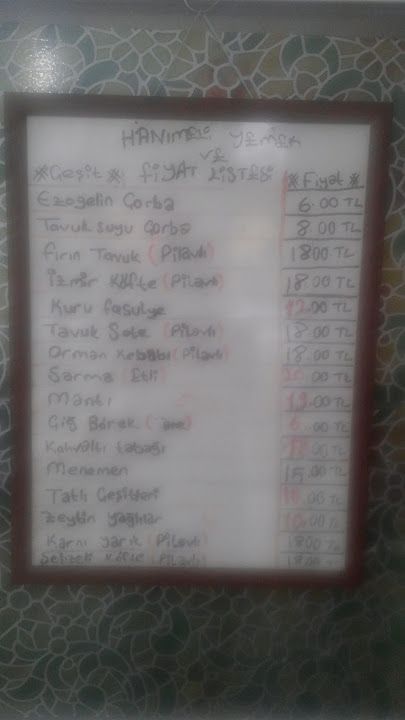 HANIMELİ YEMEK
VE
*Çeşit* FİYAT LİSTESİ *Fiyat*
Ezogelin Çorba 6.00 TL
Tavuk suyu Çorba 8.00 TL
fırın Tavuk (Pilavlı) 18.00 TL
İzmir Köfte (Pilavlı) 18.00 TL
Kuru fasulye 12.00 TL
Tavuk Sote (Pilavlı) 18.00 TL
Orman Kebabı (Pilavlı) 18.00 TL
Sarma (Etli) .00 TL
Mantı .00 TL
Çiğ Börek .00 TL
Kahvaltı tabağı .00 TL
Menemen 15.00 TL
Tatlı Çeşitleri .00 TL
Zeytin yağlılar .00 TL
Karnı yarık (Pilavlı) 18.00 TL
Köfte (Pilavlı) 18.00 TL